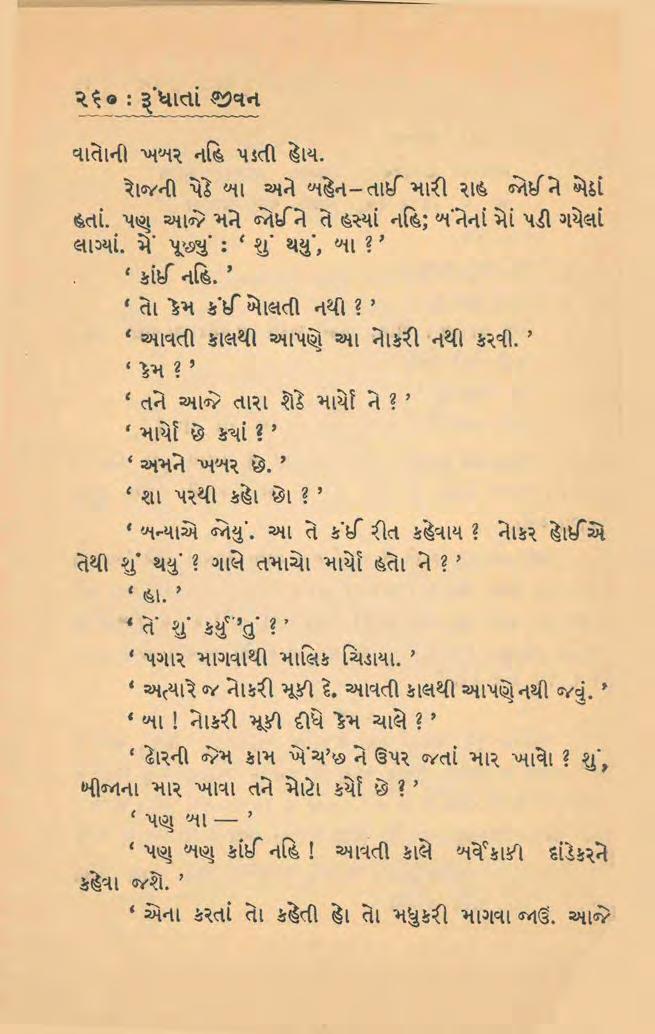 ૨૬૦ : રૂંધાતાં જીવન
વાતોની ખબર નહિ પડતી હોય.
રોજની પેઠે બા અને બહેન–તાઈ મારી રાહ જોઈને બેઠાં
હતાં. પણ આજે મને જોઈને તે હસ્યાં નહિ; બંનેનાં મોં પડી ગયેલાં
લાગ્યાં. મેં પૂછ્યું : ‘ શું થયું, બા ? ’
‘ કાંઈ નહિ. ’
‘ તો કેમ કંઈ બોલતી નથી ? ’
‘ આવતી કાલથી આપણે આ નોકરી નથી કરવી. ’
‘ કેમ ? ’
‘ તને આજે તારા શેઠે માર્યો ને ? ’
‘ માર્યો છે ક્યાં ? ’
‘ અમને ખબર છે. ’
‘ શા પરથી કહો છો ? ’
‘ બન્યાએ જોયું. આ તે કંઈ રીત કહેવાય ? નોકર હોઈએ
તેથી શું થયું ? ગાલે તમાચો માર્યો હતો ને ? ’
‘ હા. ’
‘ તેં શું કર્યું’તું ? ’
‘ પગાર માગવાથી માલિક ચિડાયા. ’
‘ અત્યારે જ નોકરી મૂકી દે. આવતી કાલથી આપણે નથી જવું. ’
‘ બા ! નોકરી મૂકી દીધે કેમ ચાલે ? ’
‘ ઢોરની જેમ કામ ખેંચ’છ ને ઉપર જતાં માર ખાવો ? શું,
બીજાના માર ખાવા તને મોટો કર્યો છે ? ’
‘ પણ બા — ’
‘ પણ બણ કાંઈ નહિ ! આવતી કાલે બર્વેકાકી દાંડેકરને
કહેવા જશે. ’
‘ એના કરતાં તો કહેતી હો તો મધુકરી માગવા જાઉં. આજે